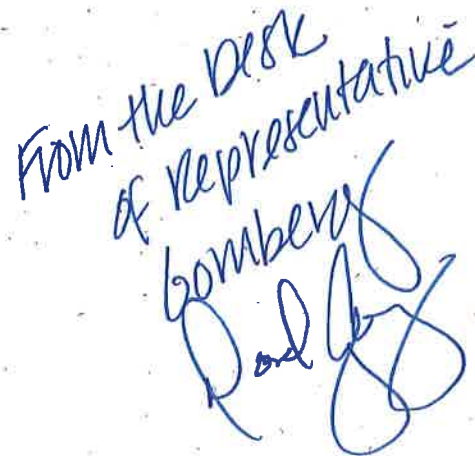 From the Desk
of Representative
Gomberg
David